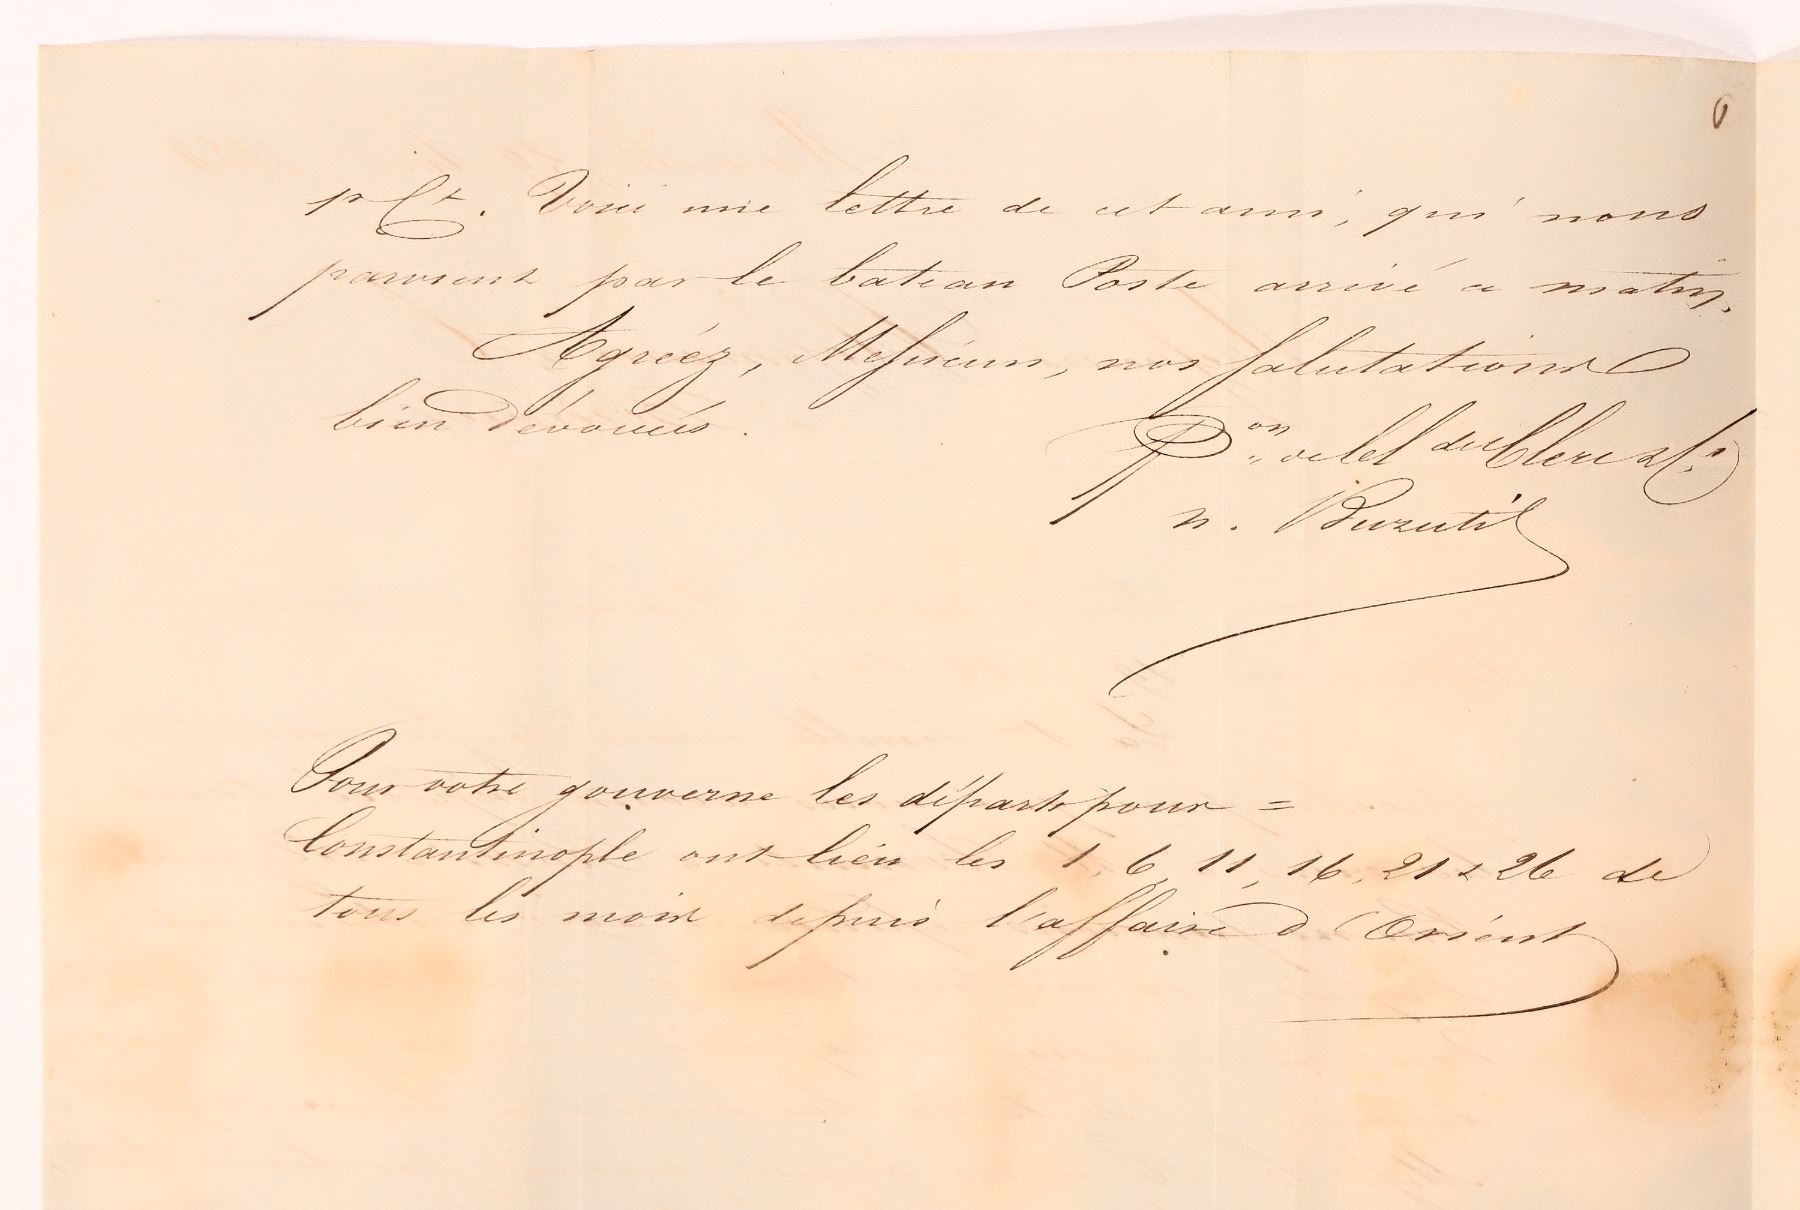 pr Ct. Voici une lettre de cet ami, qui nous
parvient par le bateau Poste arrivé ce matin.
Agréez, Messieurs, nos salutations
bien dévouées.
Pon
n.
Pour votre gouverne les départs pour =
Constantinople ont lieu les 1, 6, 11, 16, 21 & 26 de
tous les mois depuis l'affaire d'Orient